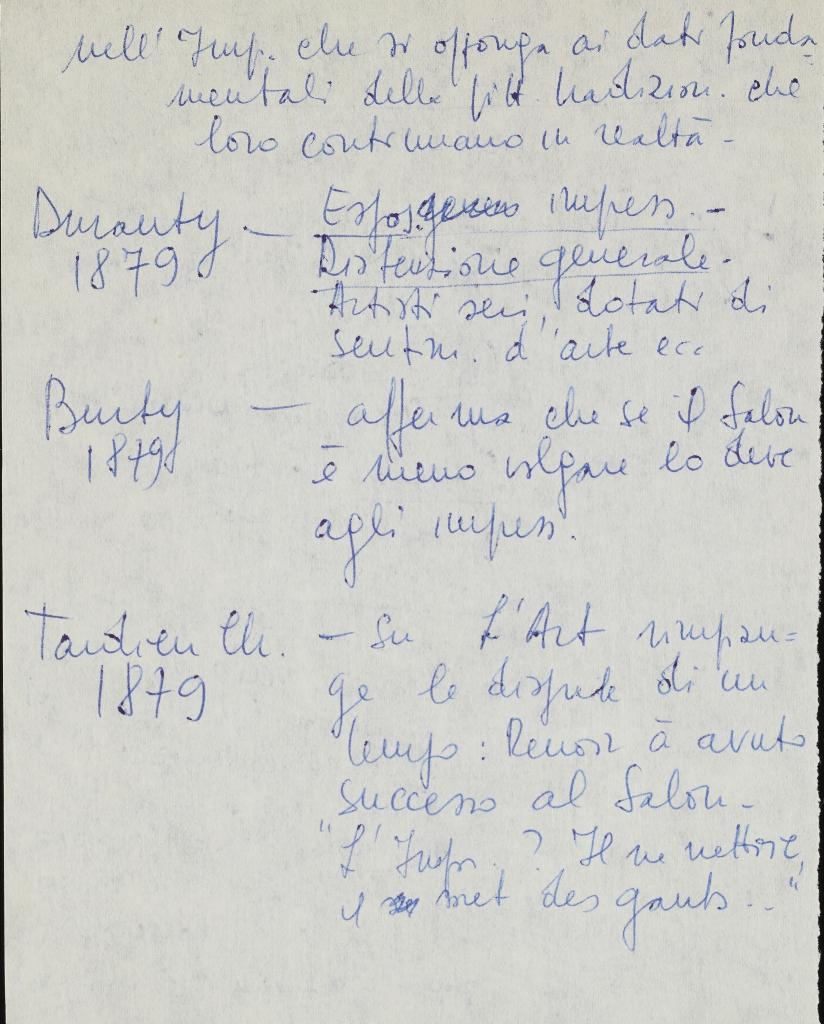 nell' Imp. che si opponga ai dati fonda-
mentali della pitt. tradizion. che
loro continuano in realtà -
Duranty - Espos. impess. -
1879 Distensione generale -
Artisti seri, dotati di
sentim. d'arte ecc
Burty - afferma che se il Salon
1879 è meno volgare lo deve
agli impess.
Tardieu Ch. - Su L'Art rimpian=
1879 ge le dispute di un
tempo : Renoir à avuto
successo al Salon -
"L'Impr. ? Il se nettoie,
il met des gants..."